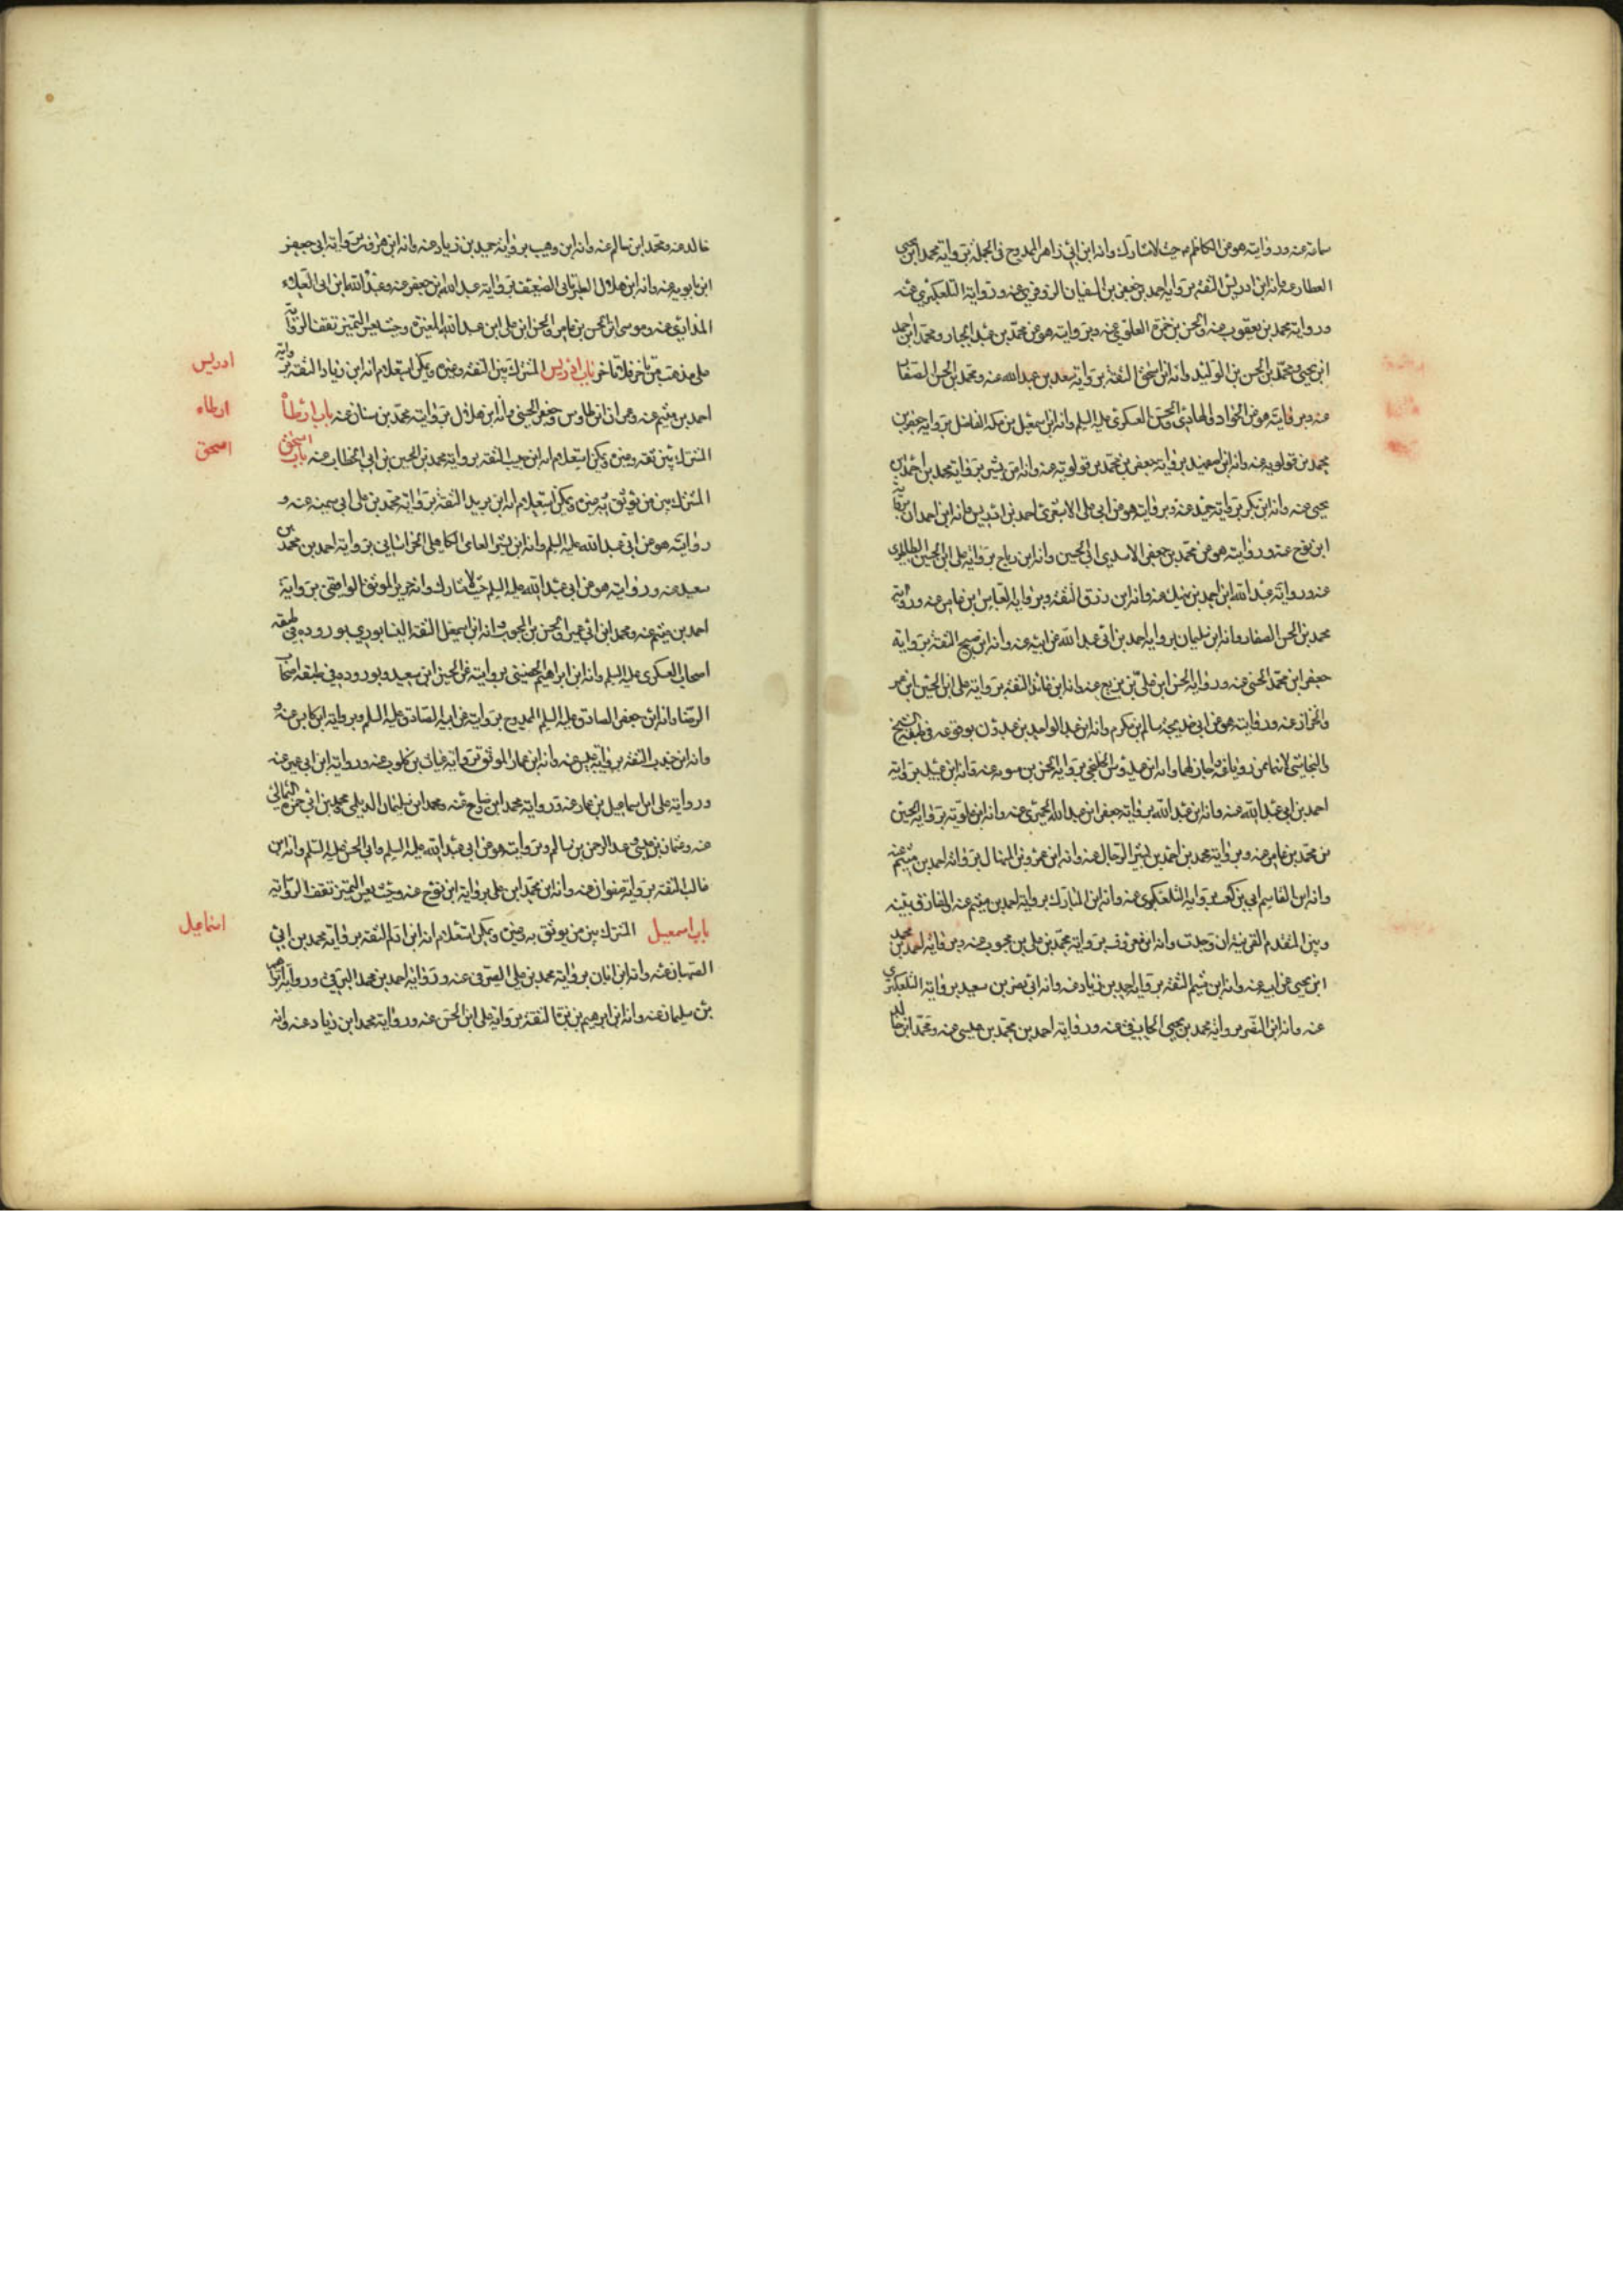 سماعة عنه وروايته هو عن الكاظم حيث لا مشارك وانه ابن ابي زاهر الممدوح في الجملة برواية محمد ابن يحيى
العطار عنه وانه ابن ادريس الثقة برواية احمد بن جعفر بن السفيان البزوفري عنه ورواية التلعكبري عنه
ورواية محمد بن يعقوب عنه والحسن بن حمزة العلوي عنه وبروايته هو عن محمد بن عبد الجبار ومحمد ابن احمد
ابن يحيى ومحمد بن الحسن بن الوليد وانه ابن اسحق الثقة برواية سعد بن عبد الله عنه ومحمد بن الحسن الصفار
عنه وبروايته هو عن الجواد والهادي والعسكري عليه السلم وانه ابن اسمعيل بن سمكه الفاضل برواية جعفر بن
محمد بن قولويه عنه وانه ابن اصفهبد برواية جعفر بن محمد بن قولويه عنه وانه ابن بشير برواية محمد بن احمد ابن
يحيى عنه وانه ابن بكر برواية حميد عنه وبروايته هو عن ابي علي الاشعري احمد بن ادريس وانه ابن احمد ان
ابن نوح عنه وروايته هو عن محمد بن جعفر الاسدي ابي الحسين وانه ابن رباح برواية علي ابن الحسن الطاطري
عنه ورواية عبد الله ابن احمد بن نهيك عنه وانه ابن رزق الثقة وبرواية العباس بن عامر عنه ورواية
محمد بن الحسن الصفار وانه ابن سليمان برواية احمد بن ابي عبد الله عن ابيه عنه وانه ابن صبيح الثقة برواية
جعفر ابن محمد الحسني عنه ورواية الحسن ابن علي بن بزيع عنه وانه ابن عائذ الثقة برواية علي ابن الحسين ابن عمر
والخزاز عنه وروايته هو عن ابي خديجة سالم ابن مكرم وانه ابن عبد الواحد بن عبدون بوقوعه في طبقة الشيخ
والنجاشي لانهما ممن رويا عنه واجاز لهما وانه ابن عبدوس الخلنجي برواية الحسن بن متويه عنه وانه ابن عبيد برواية
احمد بن ابي عبد الله عنه وانه ابن عبد الله برواية جعفر ابن عبد الله الحميري عنه وانه ابن علويه برواية الحسين
بن محمد بن عامر عنه وبرواية محمد بن احمد بن بشير الرحال عنه وانه ابن عمرو بن المنهال برواية احمد بن ميثم عنه
وانه ابن القاسم ابي بن كعب برواية التلعكبري عنه وانه ابن المبارك برواية احمد بن ميثم عنه الفارق بينه
وبين المتقدم القرينة ان وجدت وانه ابن معروف برواية محمد بن علي بن محبوب عنه وبرواية احمد بن محمد
ابن يحيى عن ابيه عنه وانه ابن ميثم الثقة برواية حميد بن زياد عنه وانه ابن نصر بن سعيد برواية التلعكبري
عنه وانه ابن النضر برواية محمد بن يحيى عنه ورواية احمد بن محمد بن عيسى عنه ومحمد ابن خالد
خالد عنه ومحمد ابن سالم عنه وانه ابن وهيب برواية حميد بن زياد عنه وانه ابن هرون برواية ابي جعفر
ابن بابويه عنه وانه ابن هلال العبرتائي الضعيف برواية عبد الله ابن جعفر عنه وعبد الله ابن ابي العلاء
المذاري عنه وموسى ابن الحسن بن عامر والحسن ابن علي ابن عبد الله المغيرة وحيث يعسر التميز تقف الرواية
على مذهب من تأخر فلا تأخر باب ادريس المشترك بين الثقة وغيره ويمكن استعلام انه ابن زياد الثقة برواية
احمد بن ميثم عنه وعمران ابن طاوس وجعفر الحسيني وانه ابن هلال برواية محمد بن سنان عنه باب ارطاة
المشترك بين ثقة وغيره ويمكن استعلام انه ابن حبيب الثقة برواية محمد بن الحسين بن ابي الخطاب عنه باب اسحق
المشترك بين من يوثق به وغيره ويمكن استعلام انه ابن بريد الثقة برواية محمد بن علي ابي سمينه عنه و
روايته هو عن ابي عبد الله عليه السلم وانه ابن بشر العامي الكاهلي الخراساني برواية احمد بن محمد بن
سعيد عنه وروايته هو عن ابي عبد الله عليه السلم حيث لا مشارك وانه جرير الموثق الواقفي برواية
احمد بن ميثم عنه ومحمد ابن ابي عمير والحسن بن المحبوب وانه ابن اسمعيل الثقة النيسابوري بوروده في طبقة
اصحاب العسكري عليه السلم وانه ابن ابراهيم الحضيني بروايته عن الحسين ابن سعيد وبوروده في طبقة اصحاب
الرضا وانه ابن جعفر الصادق عليه السلم الممدوح بروايته عن ابيه الصادق عليه السلم وبرواية ابن كاسب عنه و
وانه ابن جندب الثقة برواية عبيس عنه وانه ابن عمار الموثق برواية غياث بن كلوب عنه ورواية ابن ابي عمير عنه
ورواية علي ابن اسماعيل بن عمار عنه ورواية محمد ابن وضاح عنه ومحمد ابن سليمان الديلمي ومحمد بن ابي حمزة الثمالي
عنه وعثمان بن عيسى وعبد الرحمن بن سالم وبروايته هو عن ابي عبد الله عليه السلم وابي الحسن عليه السلم وانه ابن
غالب الثقة برواية صفوان عنه وانه ابن محمد ابن علي برواية ابن نوح عنه وحيث يعسر التميز تقف الرواية
باب اسمعيل المشترك بين من يوثق به وغيره ويمكن استعلام انه ابن ادم الثقة برواية محمد بن ابي
الصهبان عنه وانه ابن ابان برواية محمد بن علي الصيرفي عنه ورواية احمد بن محمد البرقي ورواية ابراهيم
بن سليمان عنه وانه ابن ابرهيم بن بزة الثقة برواية علي ابن الحسن عنه ورواية محمد ابن زياد عنه وانه
ادريس
ارطاه
اسحق
اسماعيل